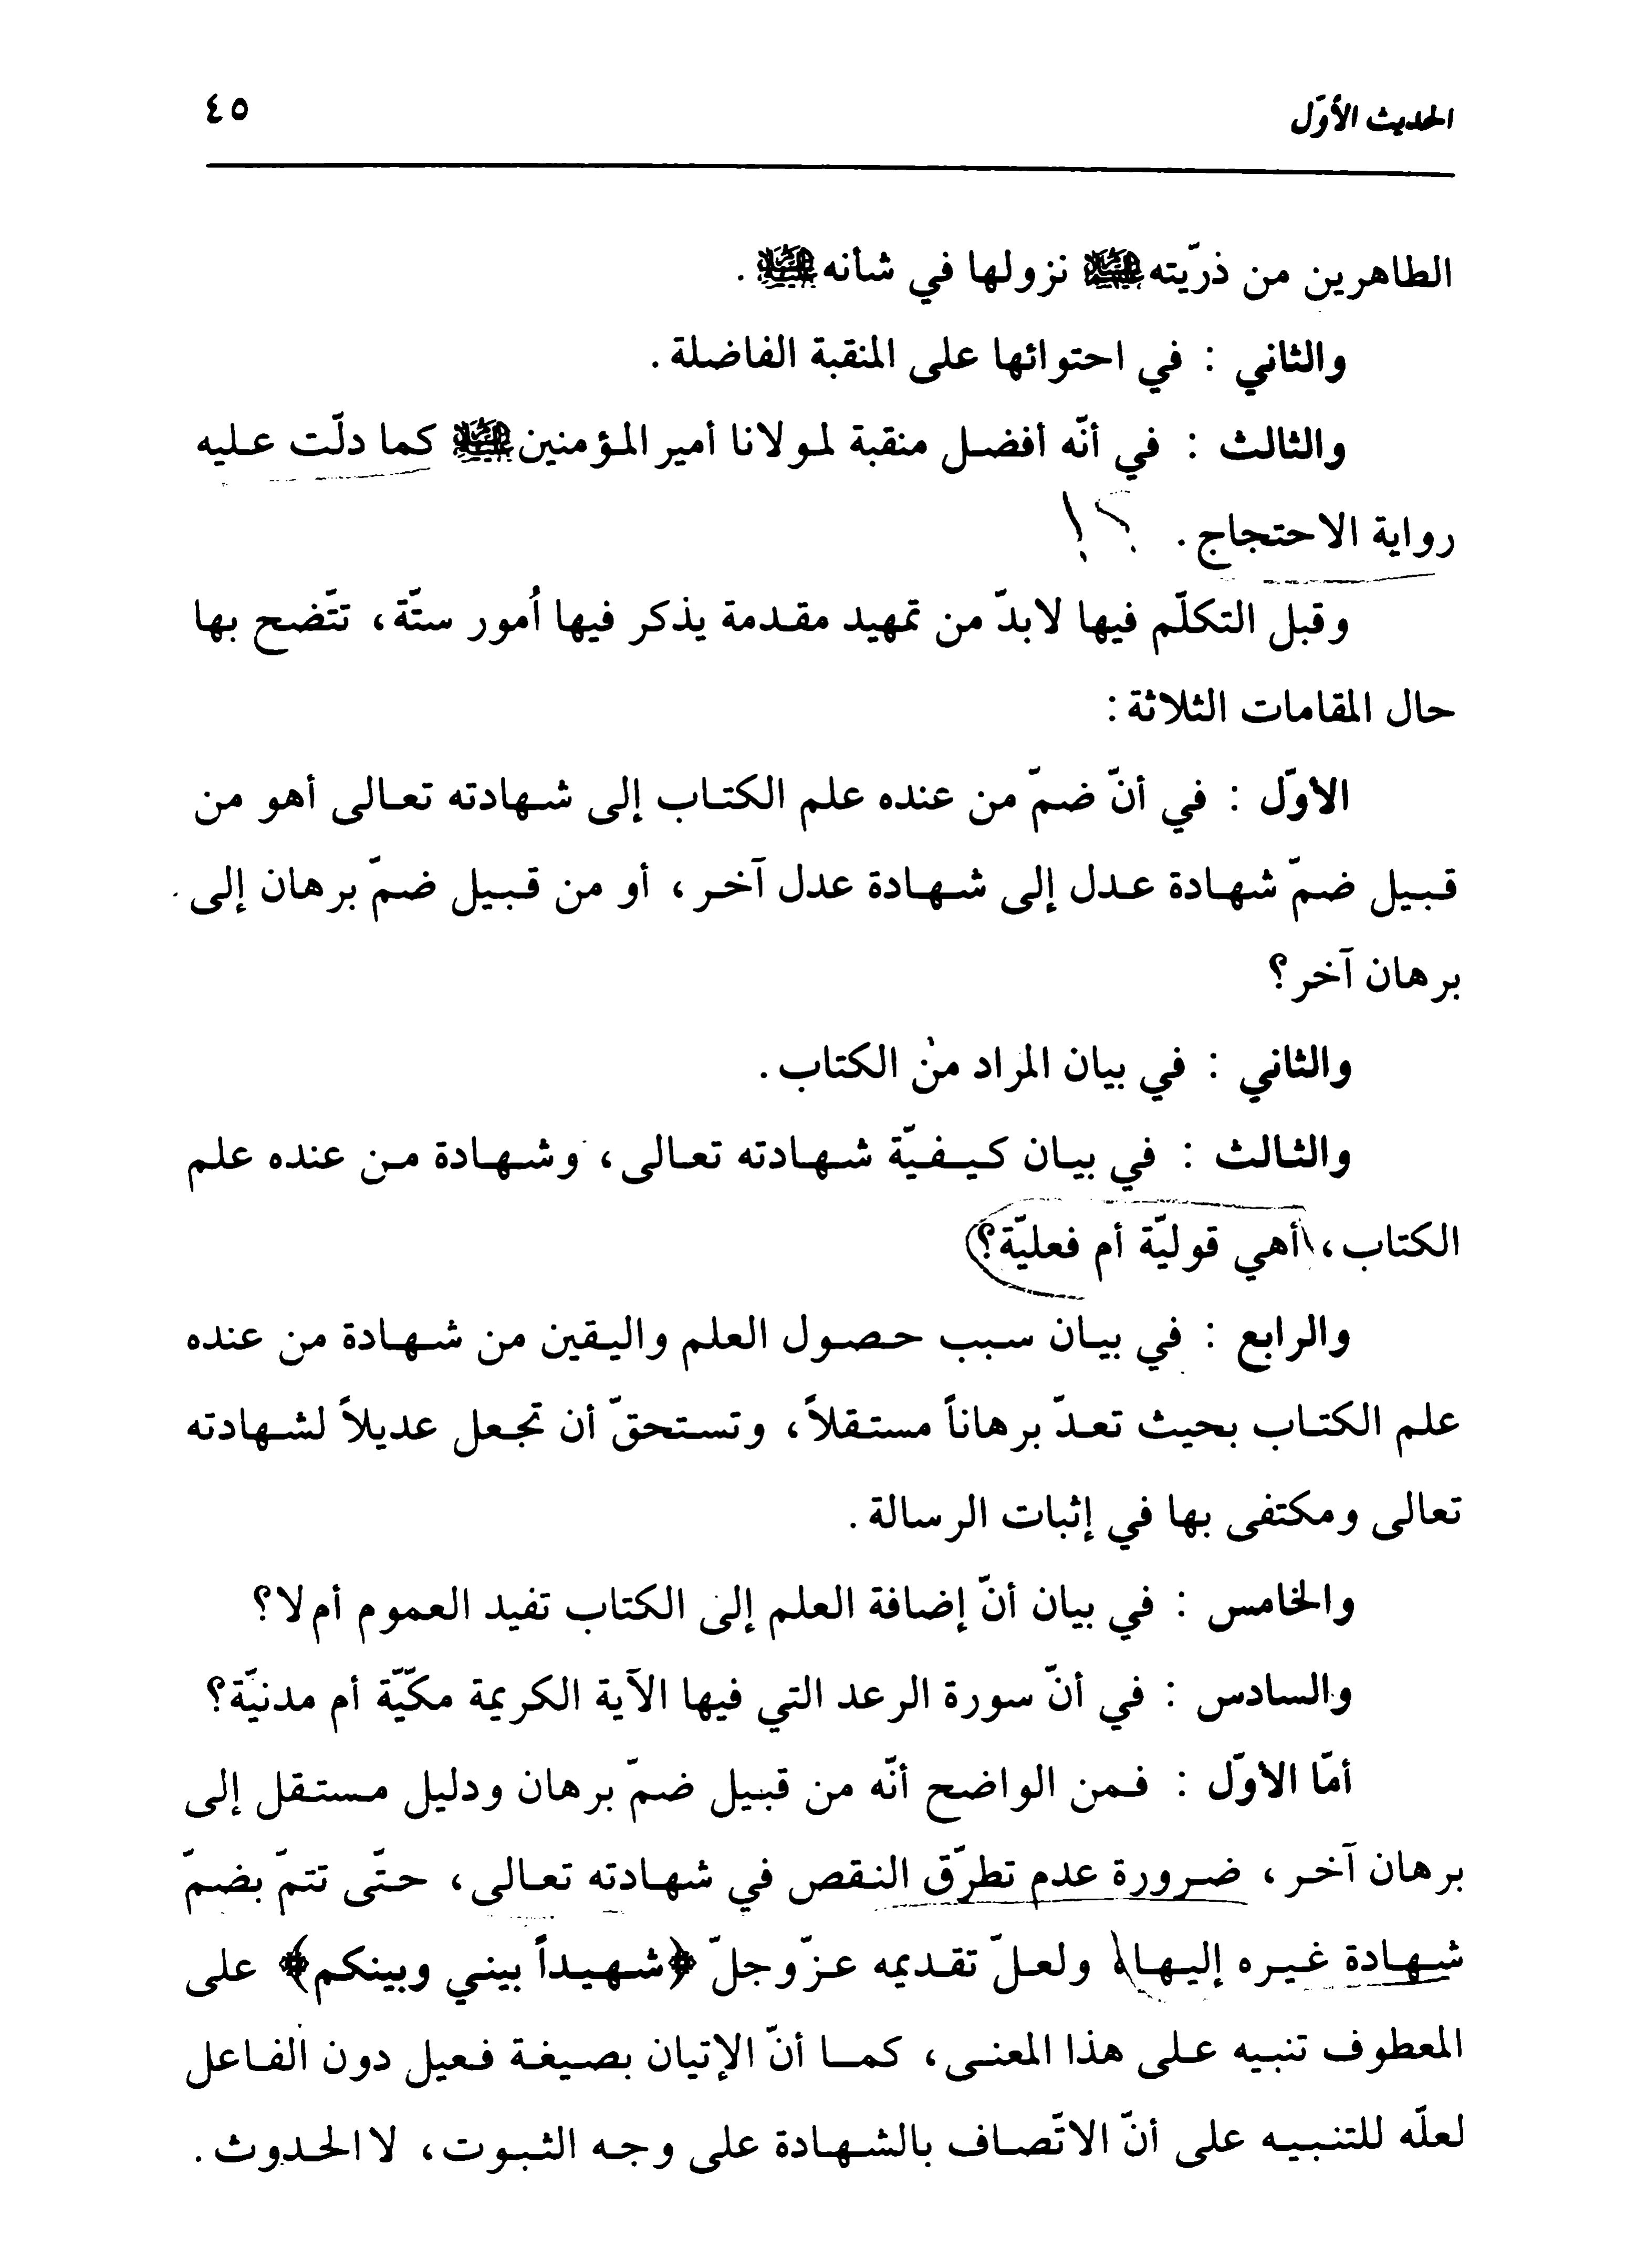 الحديث الأوّل
٤٥
الطاهرين من ذرّيّته عليهم السلام نزولها في شأنه عليه السلام .
والثاني : في احتوائها على المنقبة الفاضلة .
والثالث : في أنّه أفضل منقبة لمولانا أمير المؤمنين عليه السلام كما دلّت عليه
رواية الاحتجاج . ؟!
وقبل التكلّم فيها لابدّ من تمهيد مقدمة يذكر فيها أُمور ستّة، تتّضح بها
حال المقامات الثلاثة:
الأوّل : في أنّ ضمّ من عنده علم الكتاب إلى شهادته تعالى أهو من
قبيل ضمّ شهادة عدل إلى شهادة عدل آخر، أو من قبيل ضمّ برهان إلى
برهان آخر؟
والثاني : في بيان المراد من الكتاب .
والثالث : في بيان كيفيّة شهادته تعالى، وشهادة من عنده علم
الكتاب، أهي قوليّة أم فعليّة؟
والرابع : في بيان سبب حصول العلم واليقين من شهادة من عنده
علم الكتاب بحيث تعدّ برهاناً مستقلاً، وتستحقّ أن تجعل عديلاً لشهادته
تعالى ومكتفى بها في إثبات الرسالة .
والخامس : في بيان أنّ إضافة العلم إلى الكتاب تفيد العموم أم لا؟
والسادس : في أنّ سورة الرعد التي فيها الآية الكريمة مكّيّة أم مدنيّة؟
أمّا الأوّل : فمن الواضح أنّه من قبيل ضمّ برهان ودليل مستقل إلى
برهان آخر، ضرورة عدم تطرّق النقص في شهادته تعالى، حتّى تتمّ بضمّ
شهادة غيره إليها، ولعلّ تقديمه عزّ وجلّ ﴿شهيداً بيني وبينكم﴾ على
المعطوف تنبيه على هذا المعنى، كما أنّ الإتيان بصيغة فعيل دون الفاعل
لعلّه للتنبيه على أنّ الاتّصاف بالشهادة على وجه الثبوت، لا الحدوث .